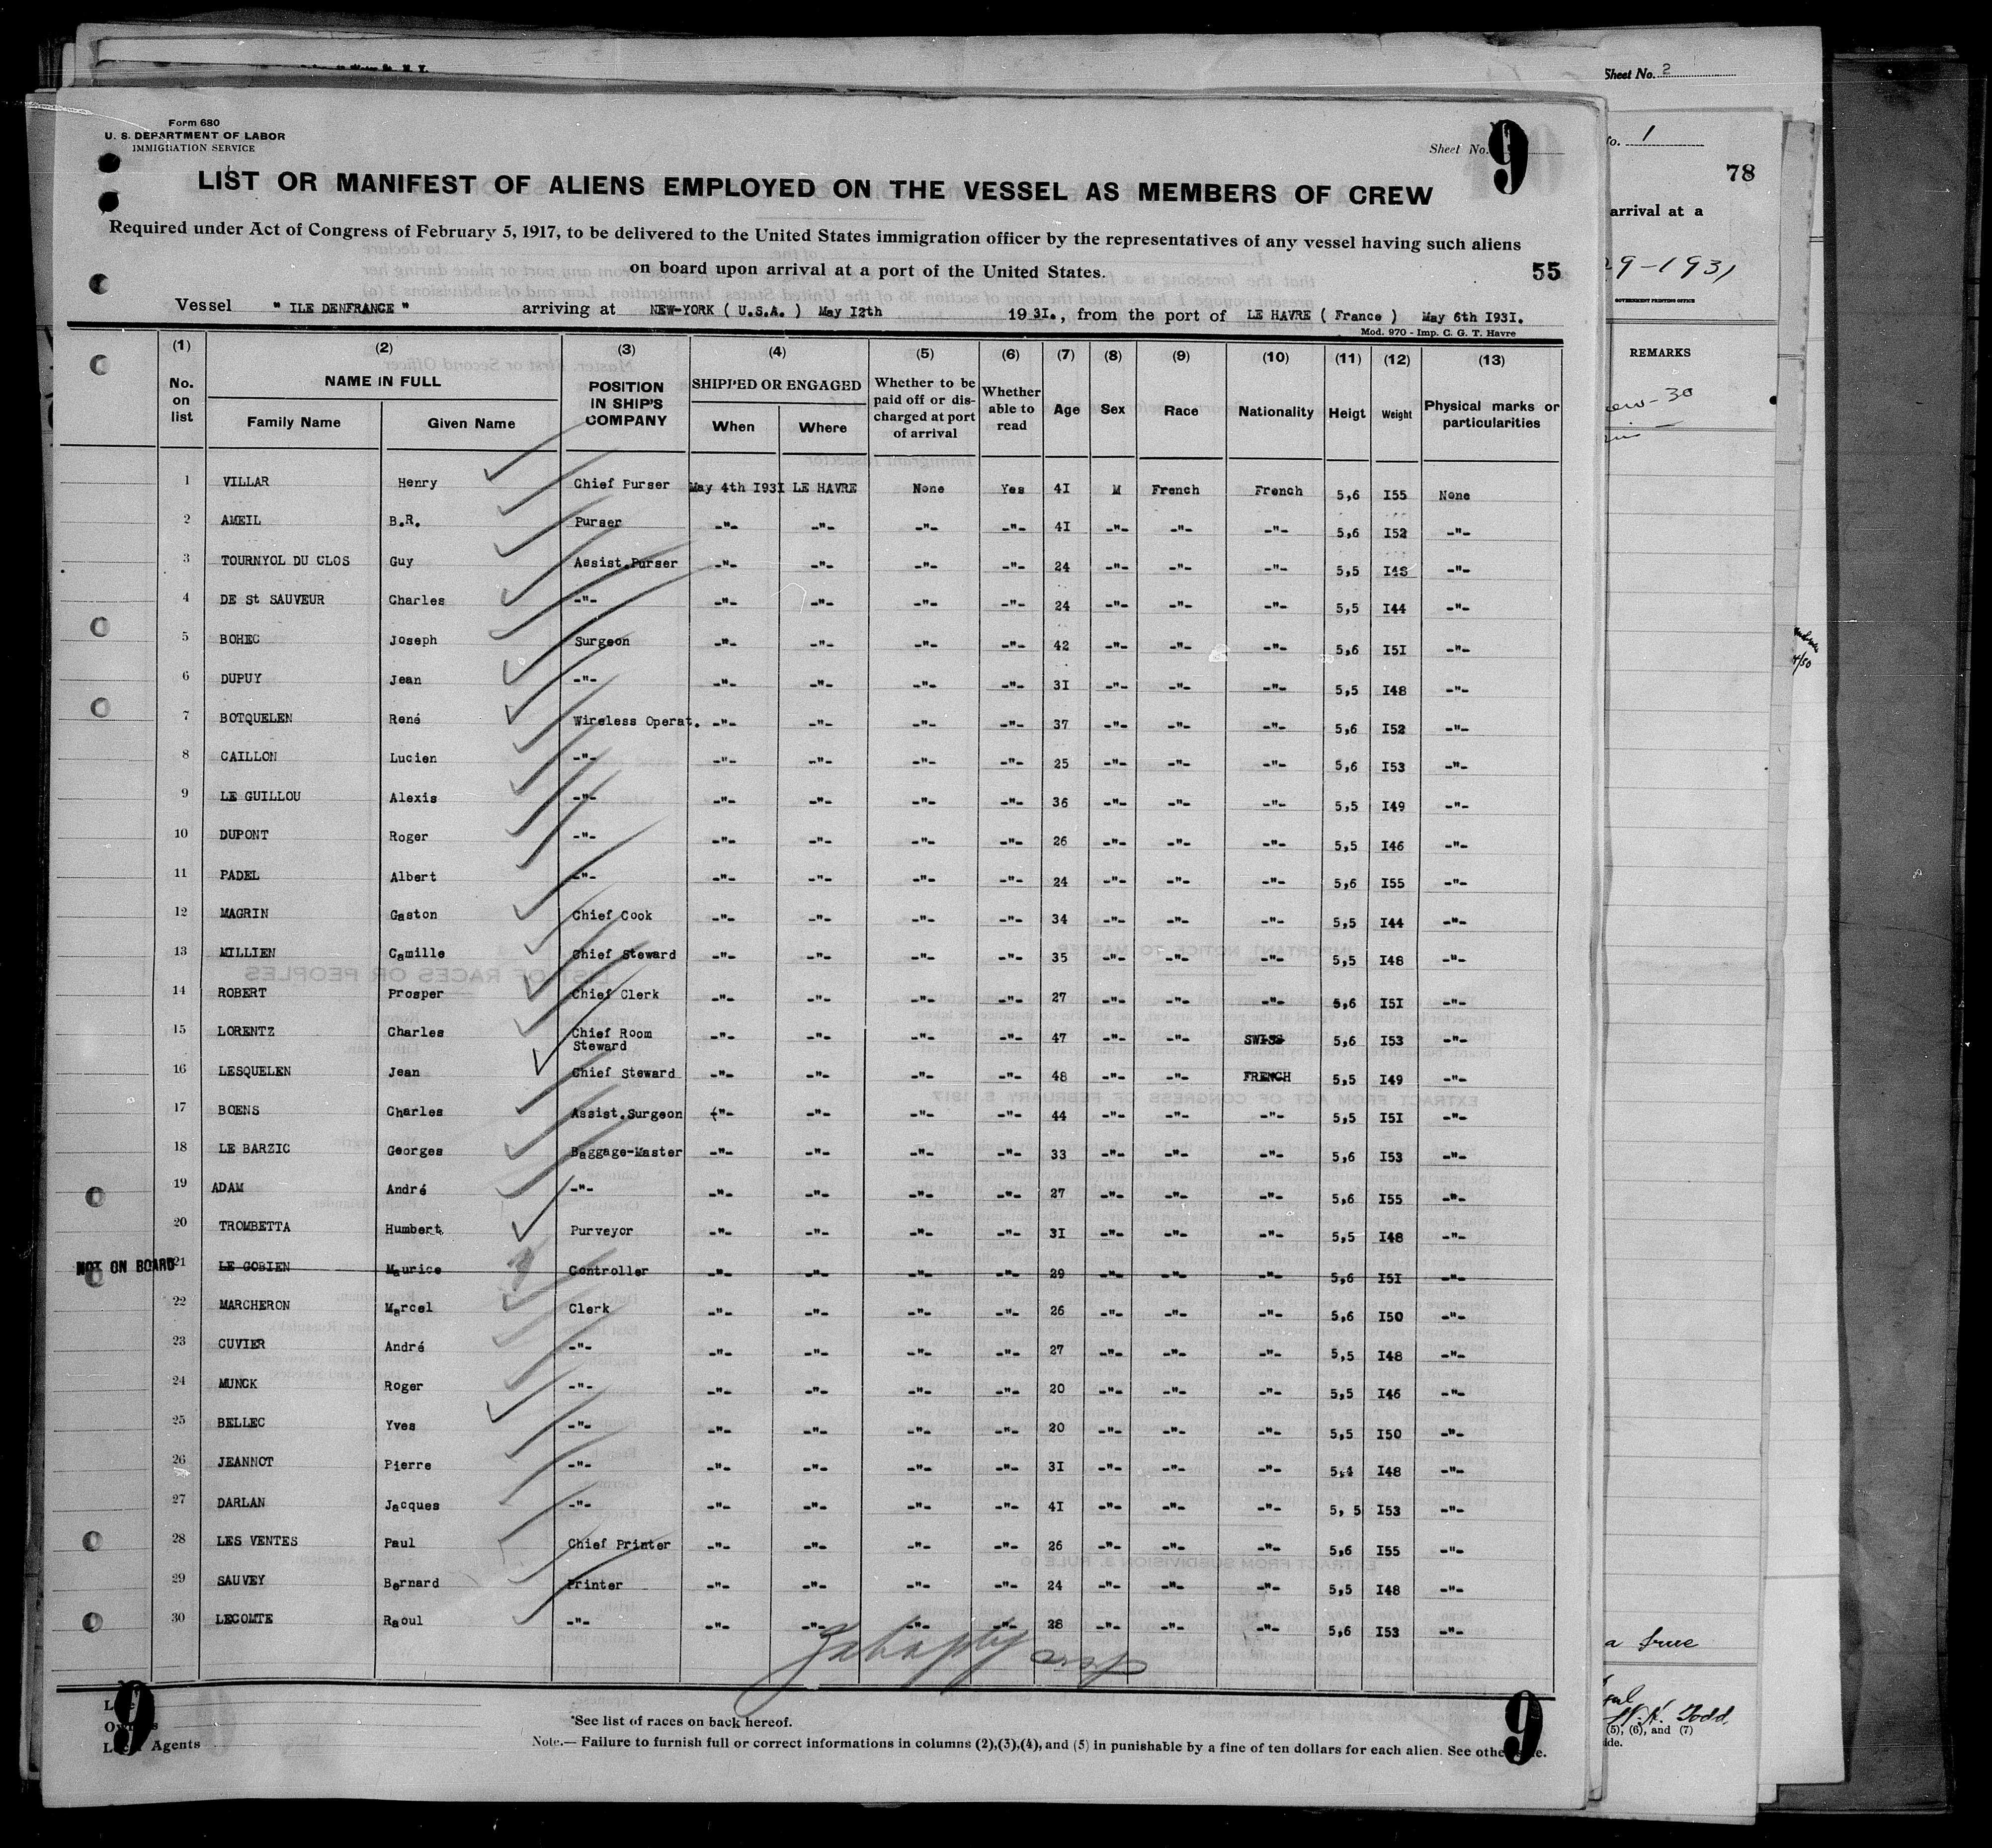 Sheet No. 2
No. 1
78
arrival at a
29-1931
GOVERNMENT PRINTING OFFICE
REMARKS
Form 680
U. S. DEPARTMENT OF LABOR
IMMIGRATION SERVICE
Sheet No. 9
LIST OR MANIFEST OF ALIENS EMPLOYED ON THE VESSEL AS MEMBERS OF CREW
Required under Act of Congress of February 5, 1917, to be delivered to the United States immigration officer by the representatives of any vessel having such aliens
on board upon arrival at a port of the United States.
55
Vessel " ILE DENFRANCE " arriving at NEW-YORK ( U.S.A. ) May I2th 19 3I. , from the port of LE HAVRE ( France ) May 6th I93I.
Mod. 970 - Imp. C. G. T. Havre
(1) (2) (3) (4) (5) (6) (7) (8) (9) (10) (11) (12) (13)
No. on list NAME IN FULL Family Name Given Name POSITION IN SHIP'S COMPANY SHIPPED OR ENGAGED When Where Whether to be paid off or discharged at port of arrival Whether able to read Age Sex Race Nationality Heigt Weight Physical marks or particularities
1 VILLAR Henry Chief Purser May 4th I93I LE HAVRE None Yes 4I M French French 5,6 I55 None
2 AMEIL B.R. Purser -"- -"- -"- -"- 4I -"- -"- -"- 5,6 I52 -"-
3 TOURNYOL DU CLOS Guy Assist.Purser -"- -"- -"- -"- 24 -"- -"- -"- 5,5 I48 -"-
4 DE St SAUVEUR Charles -"- -"- -"- -"- -"- 24 -"- -"- -"- 5,5 I44 -"-
5 BOHEC Joseph Surgeon -"- -"- -"- -"- 42 -"- -"- -"- 5,6 I5I -"-
6 DUPUY Jean -"- -"- -"- -"- -"- 3I -"- -"- -"- 5,5 I48 -"-
7 BOTQUELEN René Wireless Operat. -"- -"- -"- -"- 37 -"- -"- -"- 5,6 I52 -"-
8 CAILLON Lucien -"- -"- -"- -"- -"- 25 -"- -"- -"- 5,6 I53 -"-
9 LE GUILLOU Alexis -"- -"- -"- -"- -"- 36 -"- -"- -"- 5,5 I49 -"-
10 DUPONT Roger -"- -"- -"- -"- -"- 26 -"- -"- -"- 5,5 I46 -"-
11 PADEL Albert -"- -"- -"- -"- -"- 24 -"- -"- -"- 5,6 I55 -"-
12 MAGRIN Gaston Chief Cook -"- -"- -"- -"- 34 -"- -"- -"- 5,5 I44 -"-
13 MILLIEN Camille Chief Steward -"- -"- -"- -"- 35 -"- -"- -"- 5,5 I48 -"-
14 ROBERT Prosper Chief Clerk -"- -"- -"- -"- 27 -"- -"- -"- 5,6 I5I -"-
15 LORENTZ Charles Chief Room Steward -"- -"- -"- -"- 47 -"- -"- SWISS 5,6 I53 -"-
16 LESQUELEN Jean Chief Steward -"- -"- -"- -"- 48 -"- -"- FRENCH 5,5 I49 -"-
17 BOENS Charles Assist.Surgeon -"- -"- -"- -"- 44 -"- -"- -"- 5,5 I5I -"-
18 LE BARZIC Georges Baggage-Master -"- -"- -"- -"- 33 -"- -"- -"- 5,6 I53 -"-
19 ADAM André -"- -"- -"- -"- -"- 27 -"- -"- -"- 5,6 I55 -"-
20 TROMBETTA Humbert Purveyor -"- -"- -"- -"- 3I -"- -"- -"- 5,5 I48 -"-
NOT ON BOARD 21 LE GOBIEN Maurice Controller -"- -"- -"- -"- 29 -"- -"- -"- 5,6 I5I -"-
22 MARCHERON Marcel Clerk -"- -"- -"- -"- 26 -"- -"- -"- 5,6 I50 -"-
23 CUVIER André -"- -"- -"- -"- -"- 27 -"- -"- -"- 5,5 I48 -"-
24 MUNCK Roger -"- -"- -"- -"- -"- 20 -"- -"- -"- 5,5 I46 -"-
25 BELLEC Yves -"- -"- -"- -"- -"- 20 -"- -"- -"- 5,5 I50 -"-
26 JEANNOT Pierre -"- -"- -"- -"- -"- 3I -"- -"- -"- 5,4 I48 -"-
27 DARLAN Jacques -"- -"- -"- -"- -"- 4I -"- -"- -"- 5, 5 I53 -"-
28 LES VENTES Paul Chief Printer -"- -"- -"- -"- 26 -"- -"- -"- 5,6 I55 -"-
29 SAUVEY Bernard Printer -"- -"- -"- -"- 24 -"- -"- -"- 5,5 I48 -"-
30 LECOMTE Raoul -"- -"- -"- -"- -"- 28 -"- -"- -"- 5,6 I53 -"-
a true
W. H. Todd
(5), (6), and (7)
9 9
Agents
*See list of races on back hereof.
Note.— Failure to furnish full or correct informations in columns (2),(3),(4), and (5) in punishable by a fine of ten dollars for each alien. See other side.